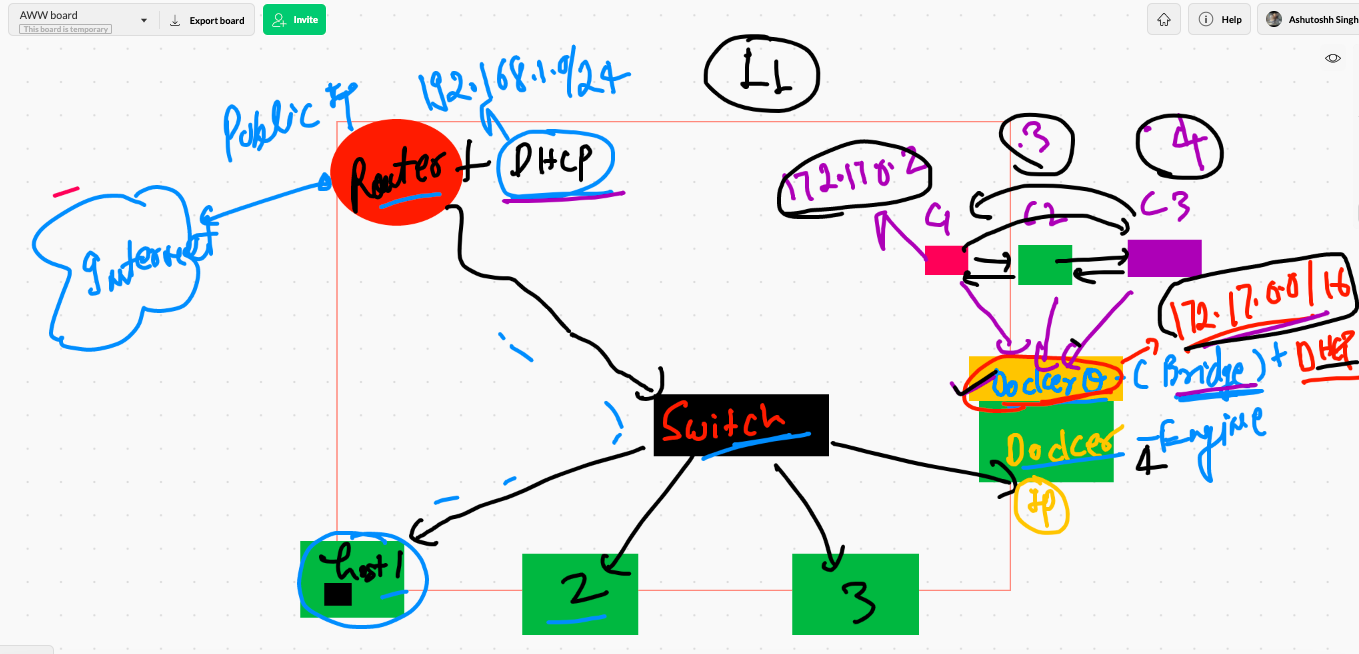 AWW board
This board is temporary
Export board
Invite
Help
Ashutoshh Singh
L1
192.168.1.0/24
Public IP
Router + DHCP
Internet
.3
.4
172.17.0.2
C1
C2
C3
172.17.0.0/16
Docker0 - (Bridge) + DHCP
Switch
Docker - Engine
4
IP
host1
2
3